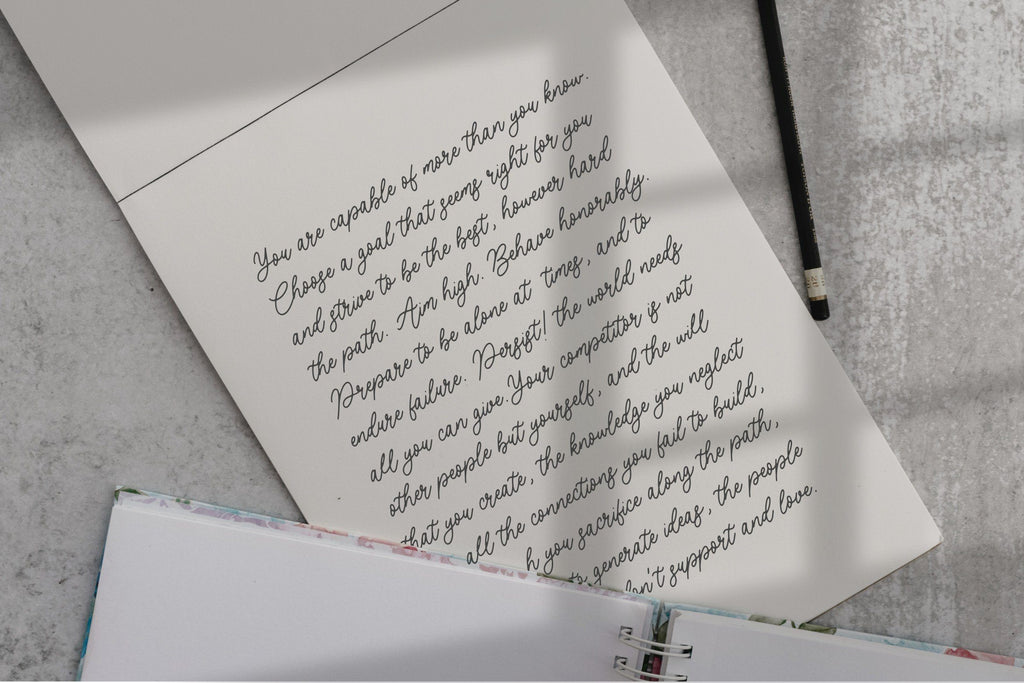 You are capable of more than you know.
Choose a goal that seems right for you
and strive to be the best, however hard
the path. Aim high. Behave honorably.
Prepare to be alone at times, and to
endure failure. Persist! the world needs
all you can give. Your competitor is not
other people but yourself, and the will
that you create, the knowledge you neglect
all the connections you fail to build,
h you sacrifice along the path,
to generate ideas, the people
support and love.